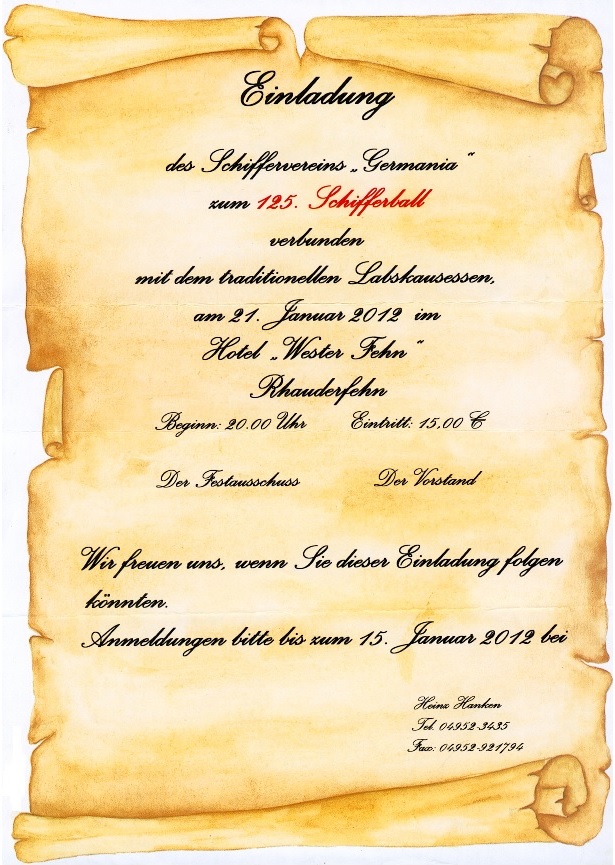 Einladung
des Schiffervereins „Germania“
zum 125. Schifferball
verbunden
mit dem traditionellen Labskausessen,
am 21. Januar 2012 im
Hotel „Wester Fehn“
Rhauderfehn
Beginn: 20.00 Uhr Eintritt: 15,00 €
Der Festausschuss Der Vorstand
Wir freuen uns, wenn Sie dieser Einladung folgen
könnten.
Anmeldungen bitte bis zum 15. Januar 2012 bei
Heinz Hanken
Tel. 04952-3435
Fax: 04952-921794